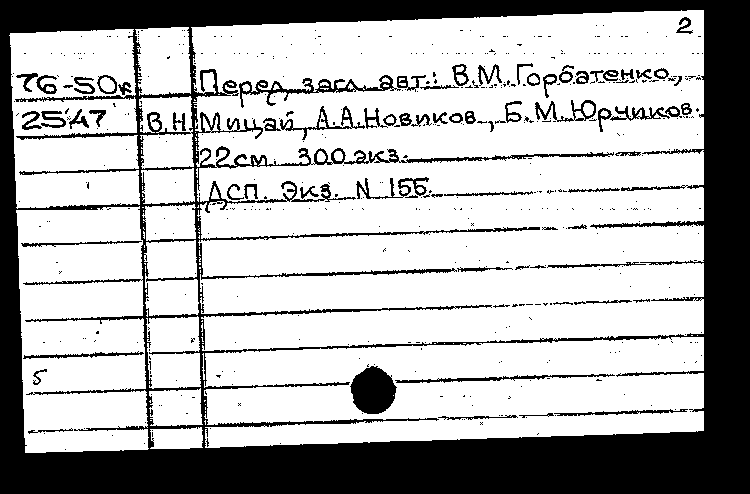 2
76-50к Перед загл. авт.: В.М. Горбатенко,
2547 В.Н. Мицай, А.А. Новиков, Б.М. Юрчиков.
22 см. 300 экз.
ДСП. Экз. N 155.
5